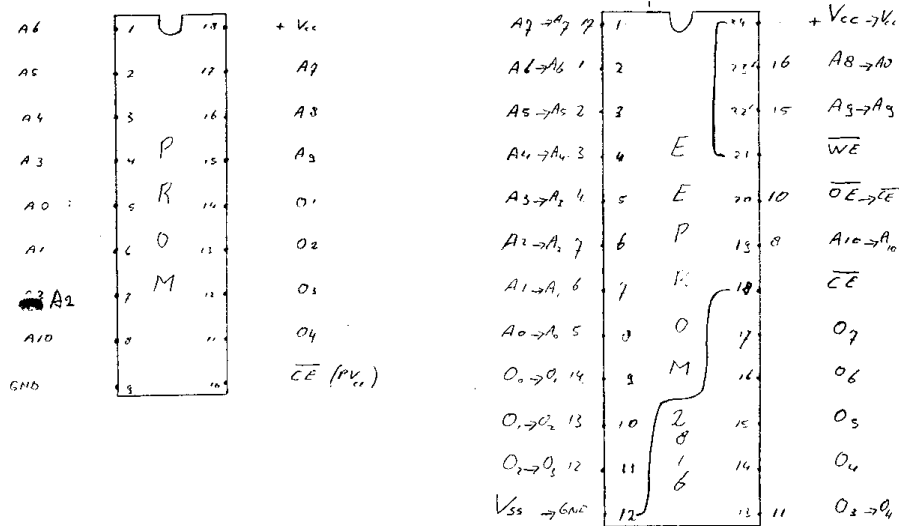 A6 1 18 + Vcc
A5 2 17 A7
A4 3 16 A8
A3 4 15 A9
A0 5 14 O1
A1 6 13 O2
A2 7 12 O3
A10 8 11 O4
GND 9 10 CE (PVcc)
PROM
A7→A7 17 1 24 + Vcc→Vcc
A6→A6 1 2 23 16 A8→A8
A5→A5 2 3 22 15 A9→A9
A4→A4 3 4 21 WE
A3→A3 4 5 20 10 OE→CE
A2→A2 7 6 19 8 A10→A10
A1→A1 6 7 18 CE
A0→A0 5 8 17 O7
O0→O1 14 9 16 O6
O1→O2 13 10 15 O5
O2→O3 12 11 14 O4
Vss→GND 12 13 11 O3→O4
EEPROM 2816